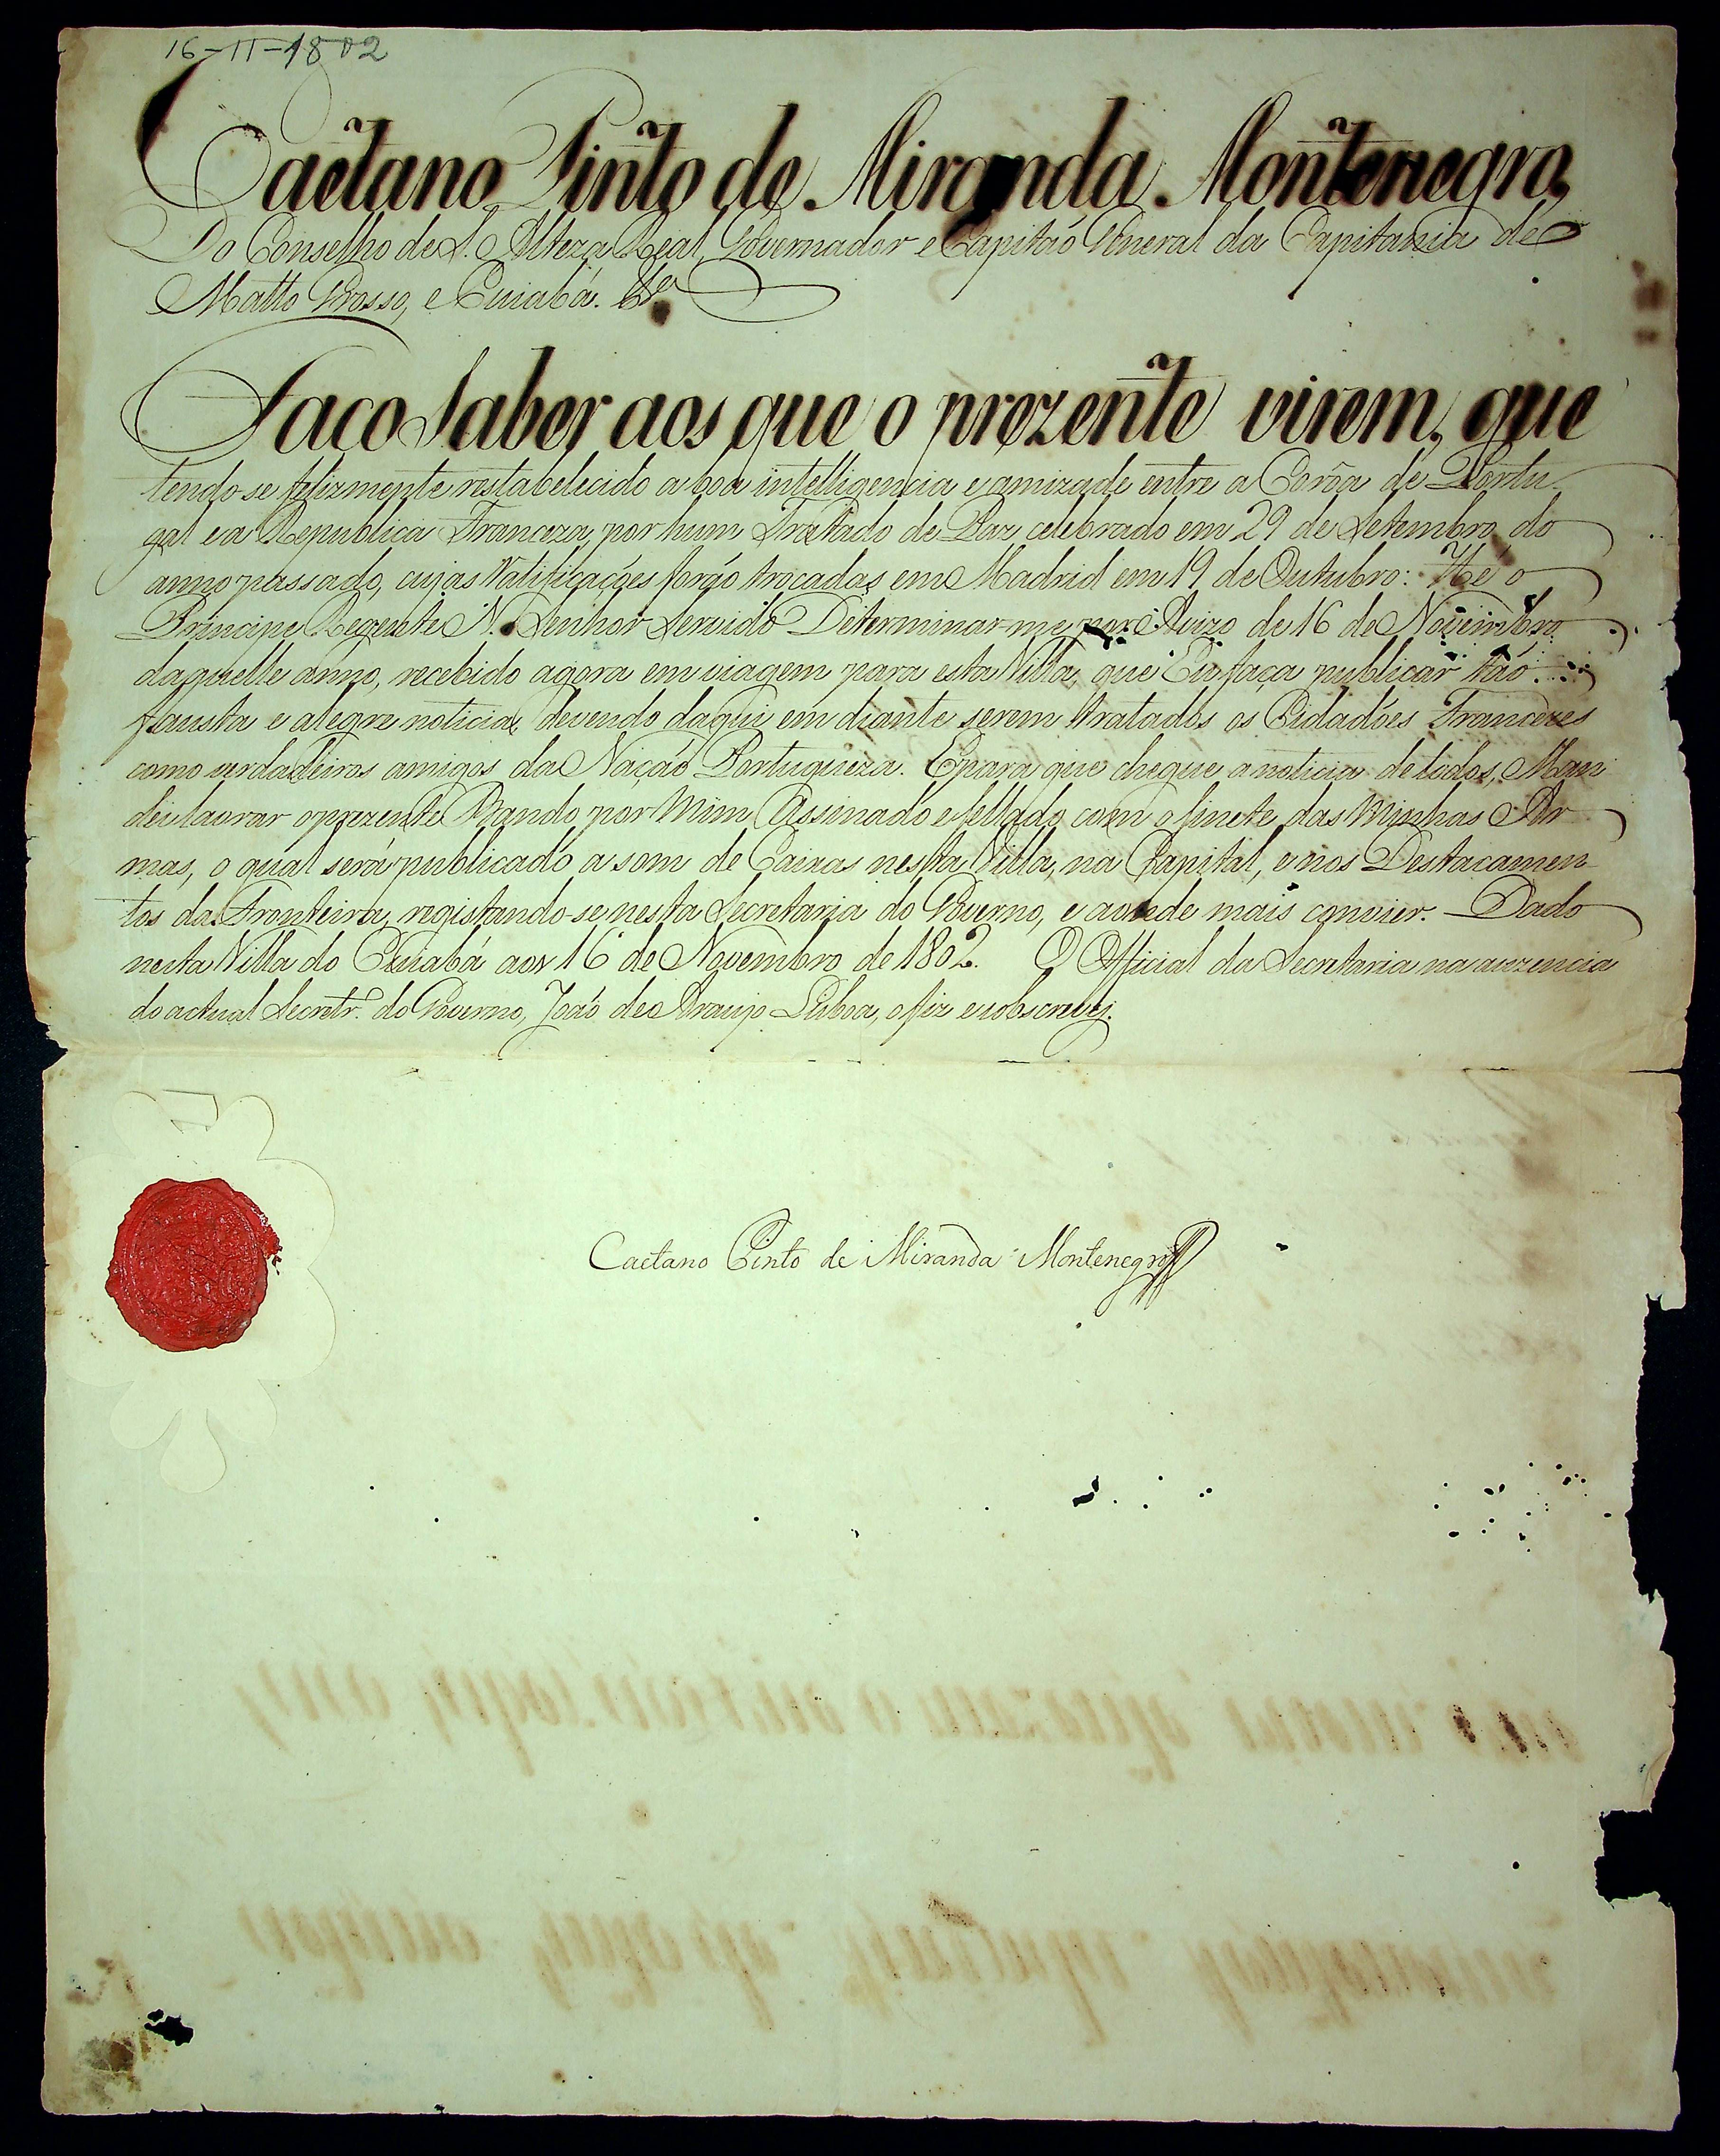 16-11-1802
Caetano Pinto de Miranda Montenegro,
Do Conselho de S. Alteza Real, Governador e Capitaó General da Capitania de
Matto Grosso, e Cuiabá. &ª
Faço saber aos que o prezente virem, que
tendo-se felizmente restabelecido a boa intelligencia e amizade entre a Corôa de Portu-
gal e a Republica Franceza, por hum Tratado de Paz celebrado em 29 de Setembro do
anno passado, cujas Ratificações forão trocadas em Madrid em 19 de Outubro: Hé o
Principe Regente N. Senhor Servido Determinar-me por Avizo de 16 de Novembro
daquelle anno, recebido agora em viagem para esta Villa, que Eu faça publicar taó
fausta e alegre noticia, devendo daqui em diante serem tratados os Cidadões Francezes
como verdadeiros amigos da Naçaó Portugueza. E para que chegue a noticia de todos, Man
dei lavrar o prezente Bando por Mim Assinado e sellado com o sinete das Minhas Ar
mas, o qual será publicado a som de Caixas nesta Villa, na Capital, e nos Destacamen-
tos da Fronteira, registando-se nesta Secretaria do Governo, e aonde mais convier. Dado
nesta Villa do Cuiabá aos 16 de Novembro de 1802. O Official da Secretaria na auzencia
do actual Secretr.º do Governo, Joaó de Araujo Lisboa, o fiz e sobscrevy.
Caetano Pinto de Miranda Montenegro